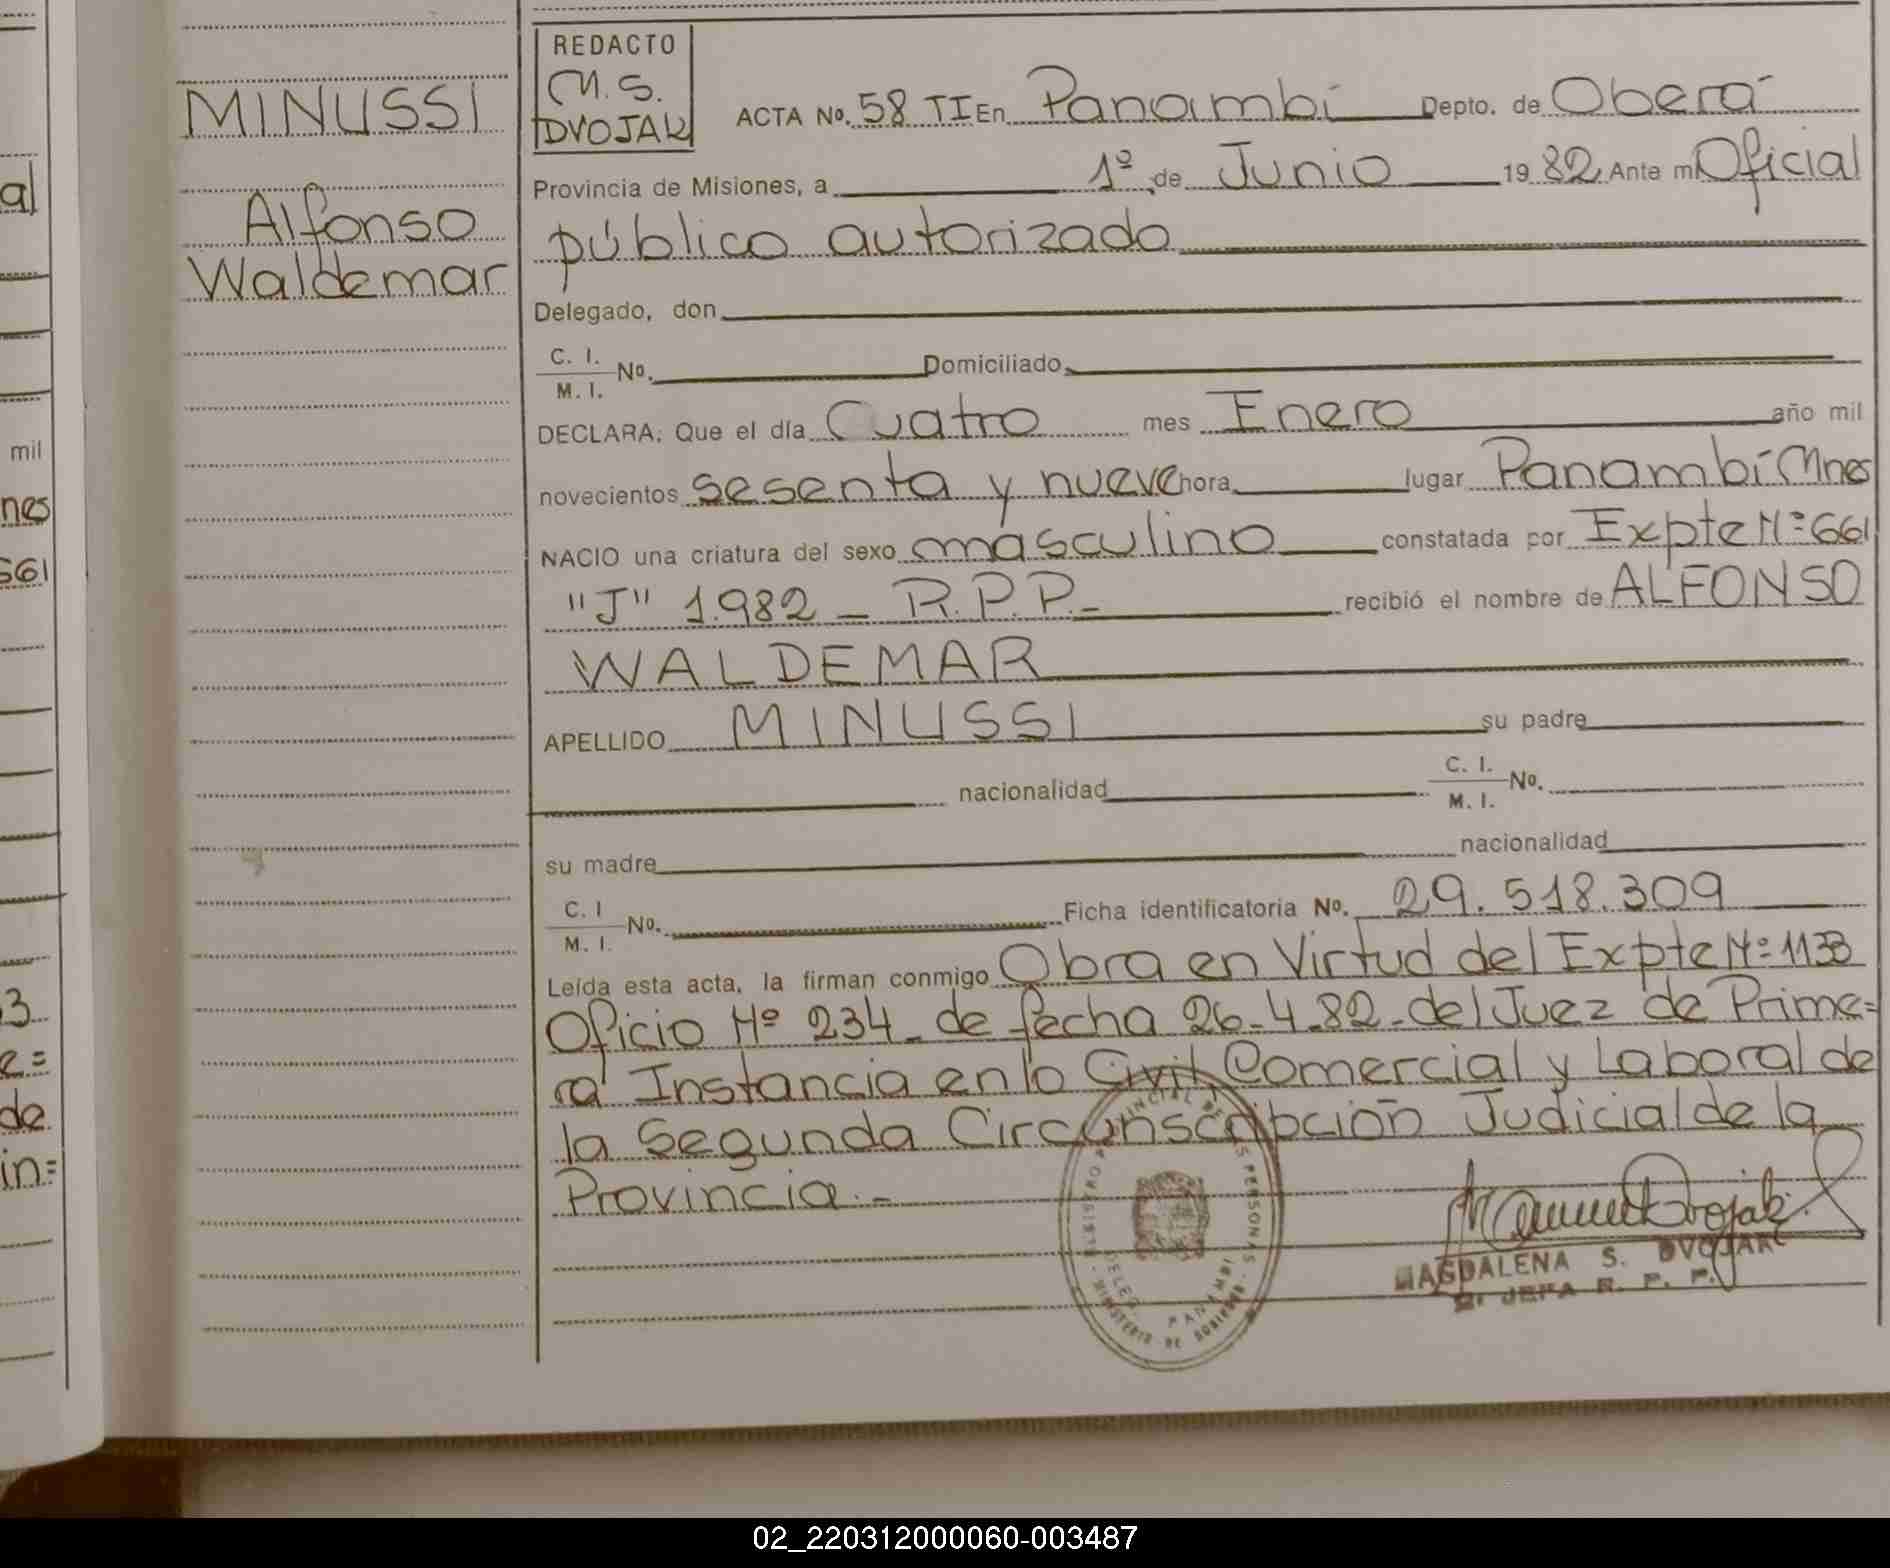 MINUSSI
Alfonso
Waldemar
REDACTO
M.S.
DVOJAK
ACTA No. 58 TI En Panambí Depto. de Oberá
Provincia de Misiones, a 1º de Junio 1982 Ante mí Oficial
público autorizado
Delegado, don
C. I.
M. I. No. Domiciliado
DECLARA: Que el día Cuatro mes Enero año mil
novecientos sesenta y nueve hora lugar Panambí Mnes
NACIO una criatura del sexo masculino constatada por Expte Nº 661
"J" 1.982 - R.P.P.- recibió el nombre de ALFONSO
WALDEMAR
APELLIDO MINUSSI su padre
nacionalidad C. I. No.
M. I.
su madre nacionalidad
C. I
M. I. No. Ficha identificatoria No. 29.518.309
Leída esta acta, la firman conmigo Obra en Virtud del Expte Nº 1133
Oficio Nº 234_ de fecha 26-4-82-del Juez de Prime=
ra Instancia en lo Civil, Comercial y Laboral de
la Segunda Circunscripción Judicial de la
Provincia.-
MAGDALENA S. DVOJAK
JEFA R. P. P.
al
mil
nes
661
3
e=
de
in=
02_220312000060-003487